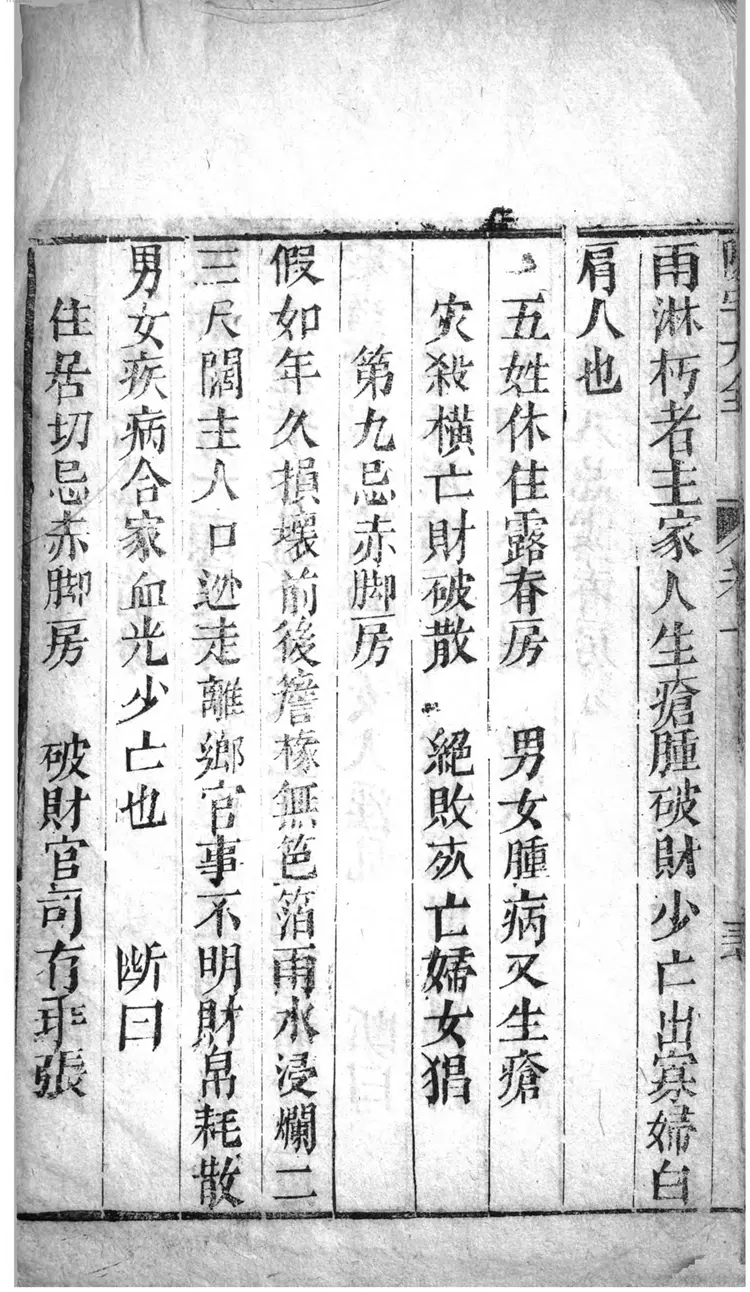 雨淋朽者主家人生瘡腫破財少亡出寡婦白
肩人也
五姓休住露脊房　男女腫病又生瘡
灾殺橫亡財破散　絕敗死亡婦女猖
第九忌赤脚房
假如年久損壞前後簷椽無笆箔雨水浸爛二
三尺闊主人口迯走離鄉官事不明財帛耗散
男女疾病合家血光少亡也　斷曰
住居切忌赤脚房　破財官司有乖張